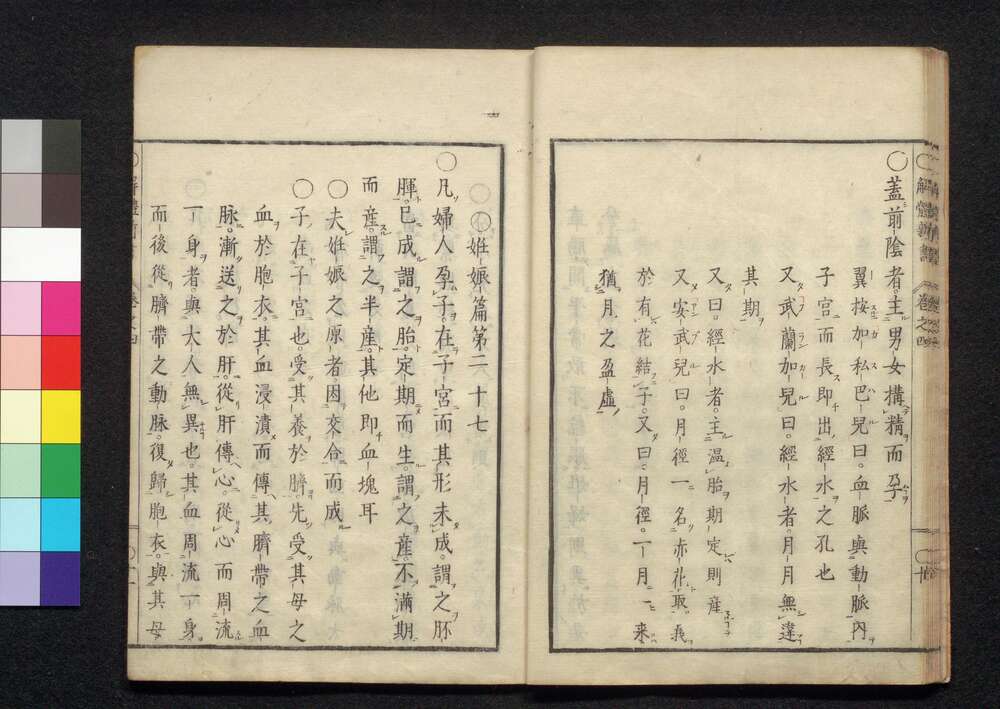 ○蓋前陰者主男女構精而孕
翼按加私巴兒曰血脈與動脈内
子宮而長即出經水之孔也
又武蘭加兒曰經水者月月無違
其期
又曰經水者主温胎期定則産
又安武兒曰月經一名赤花取義
於有花結子又曰月經一月一来
猶月之盈虚
○姙娠篇第二十七
○凡婦人孕子在子宮而其形未成謂之胚
腪已成謂之胎定期而生謂之産不滿期
而産謂之半産其他即血塊耳
○夫姙娠之原者因交合而成
○子在子宮也受其養於臍先受其母之
血於胞衣其血浸漬而傳其臍帶之血
脉漸送之於肝從肝傳心從心而周流
一身者與大人無異也其血周流一身
而後從臍帶之動脉復歸胞衣與其母